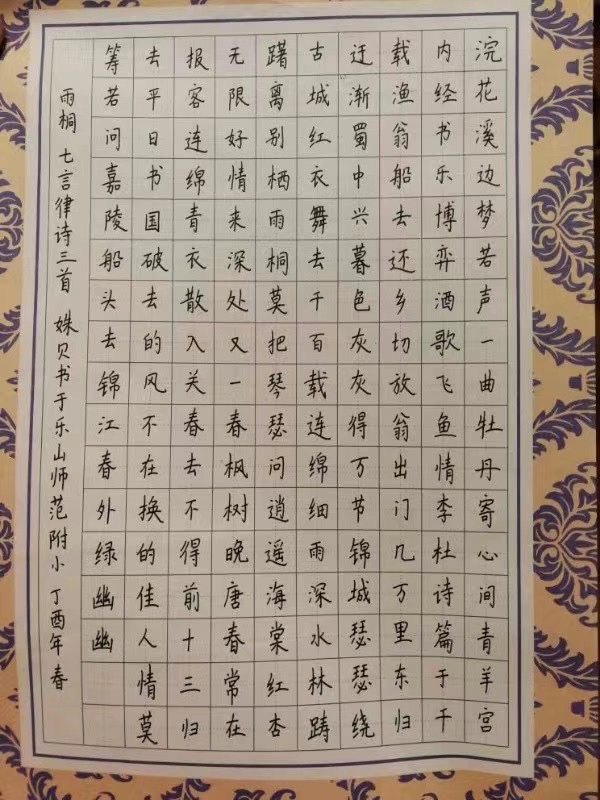 浣花溪边梦若声一曲牡丹寄心间青羊宫
内经书乐博弈酒歌飞鱼情李杜诗篇于千
载渔翁船去还乡切放翁出门几万里东归
迂渐蜀中兴暮色灰灰得万节锦城瑟瑟绕
古城红衣舞去千百载连绵细雨深水林踌
躇离别栖雨桐莫把琴瑟问逍遥海棠红杏
无限好情来深处又一春枫树晚唐春常在
报客连绵青衣散入关春去不得前十三归
去平日书国破去的风不在换的佳人情莫
筹若问嘉陵船头去锦江春外绿幽幽
雨桐 七言律诗三首 姝贝书于乐山师范附小 丁酉年 春